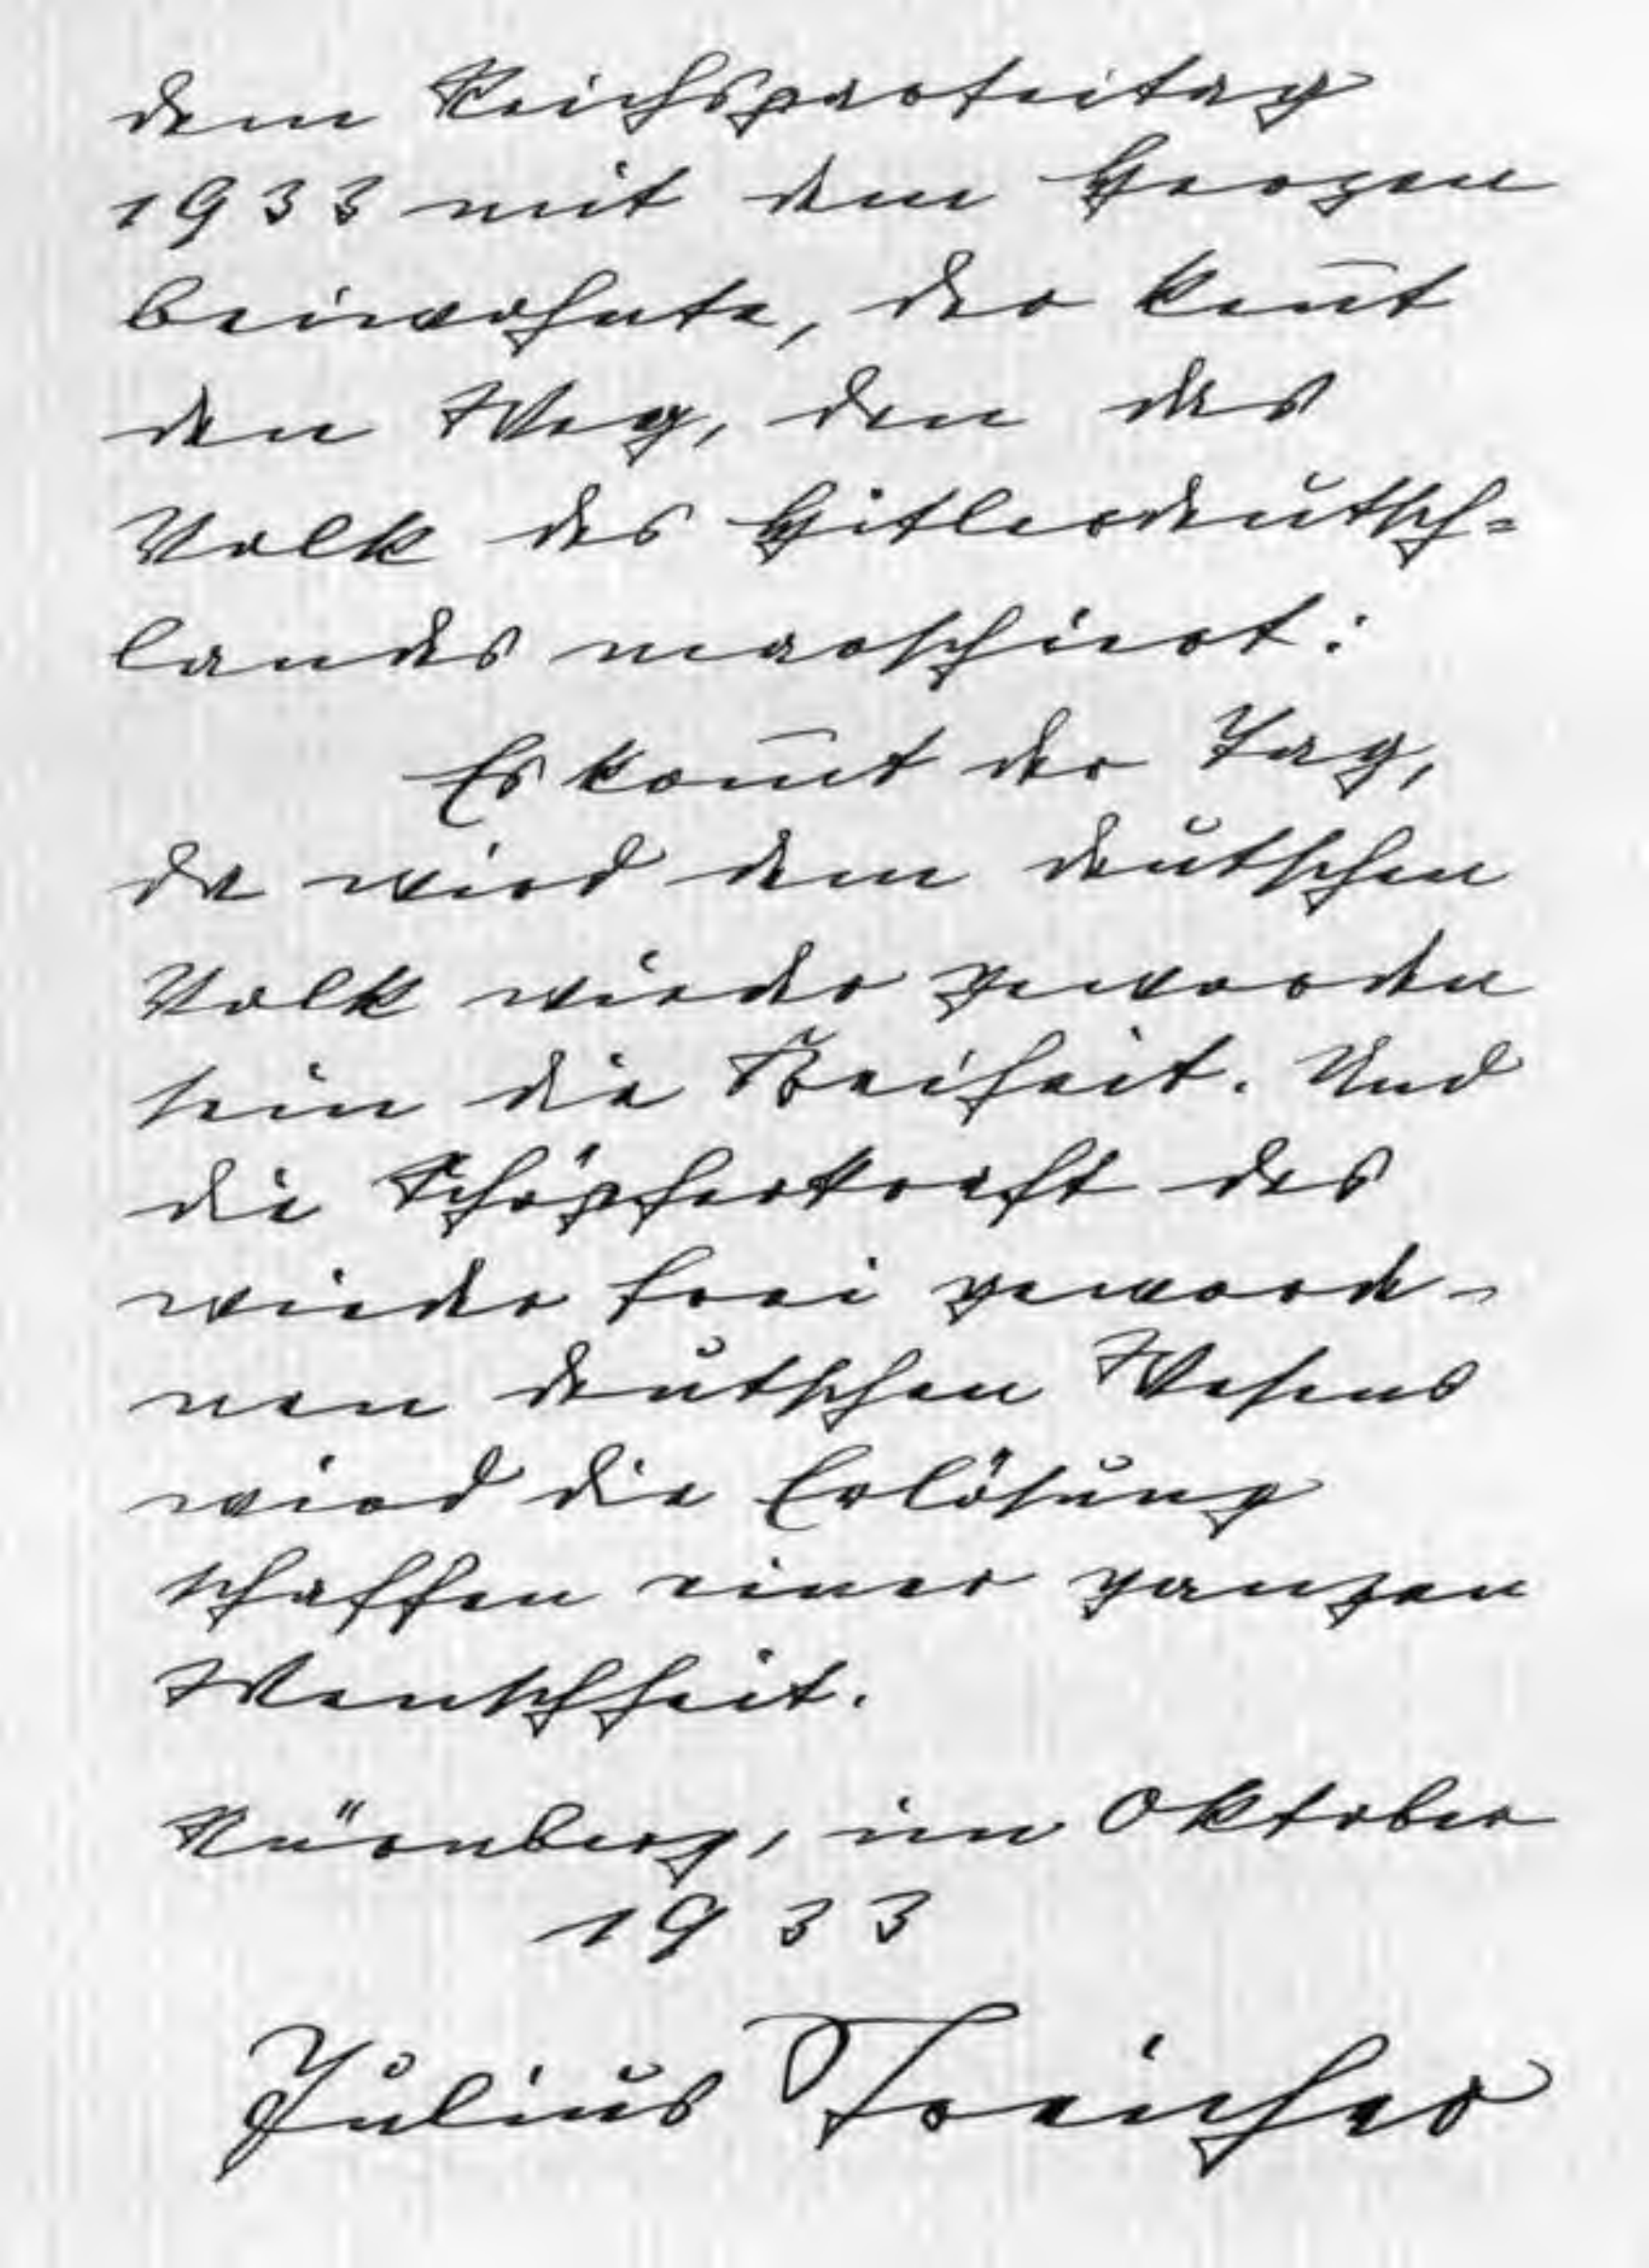 dem Reichsparteitag
1933 mit dem Herzen
beiwohnte, der ken̄t
den Weg, den das
Volk des Hitlerdeutsch=
landes marschirt:
Es kom̄t der Tag,
da wird dem deutschen
Volk wieder geworden
sein die Freiheit. Und
die Schöpferkraft des
wieder frei geworde-
nen deutschen Wesens
wird die Erlösung
schaffen einer ganzen
Menschheit.
Nürnberg, im Oktober
1933
Julius Streicher